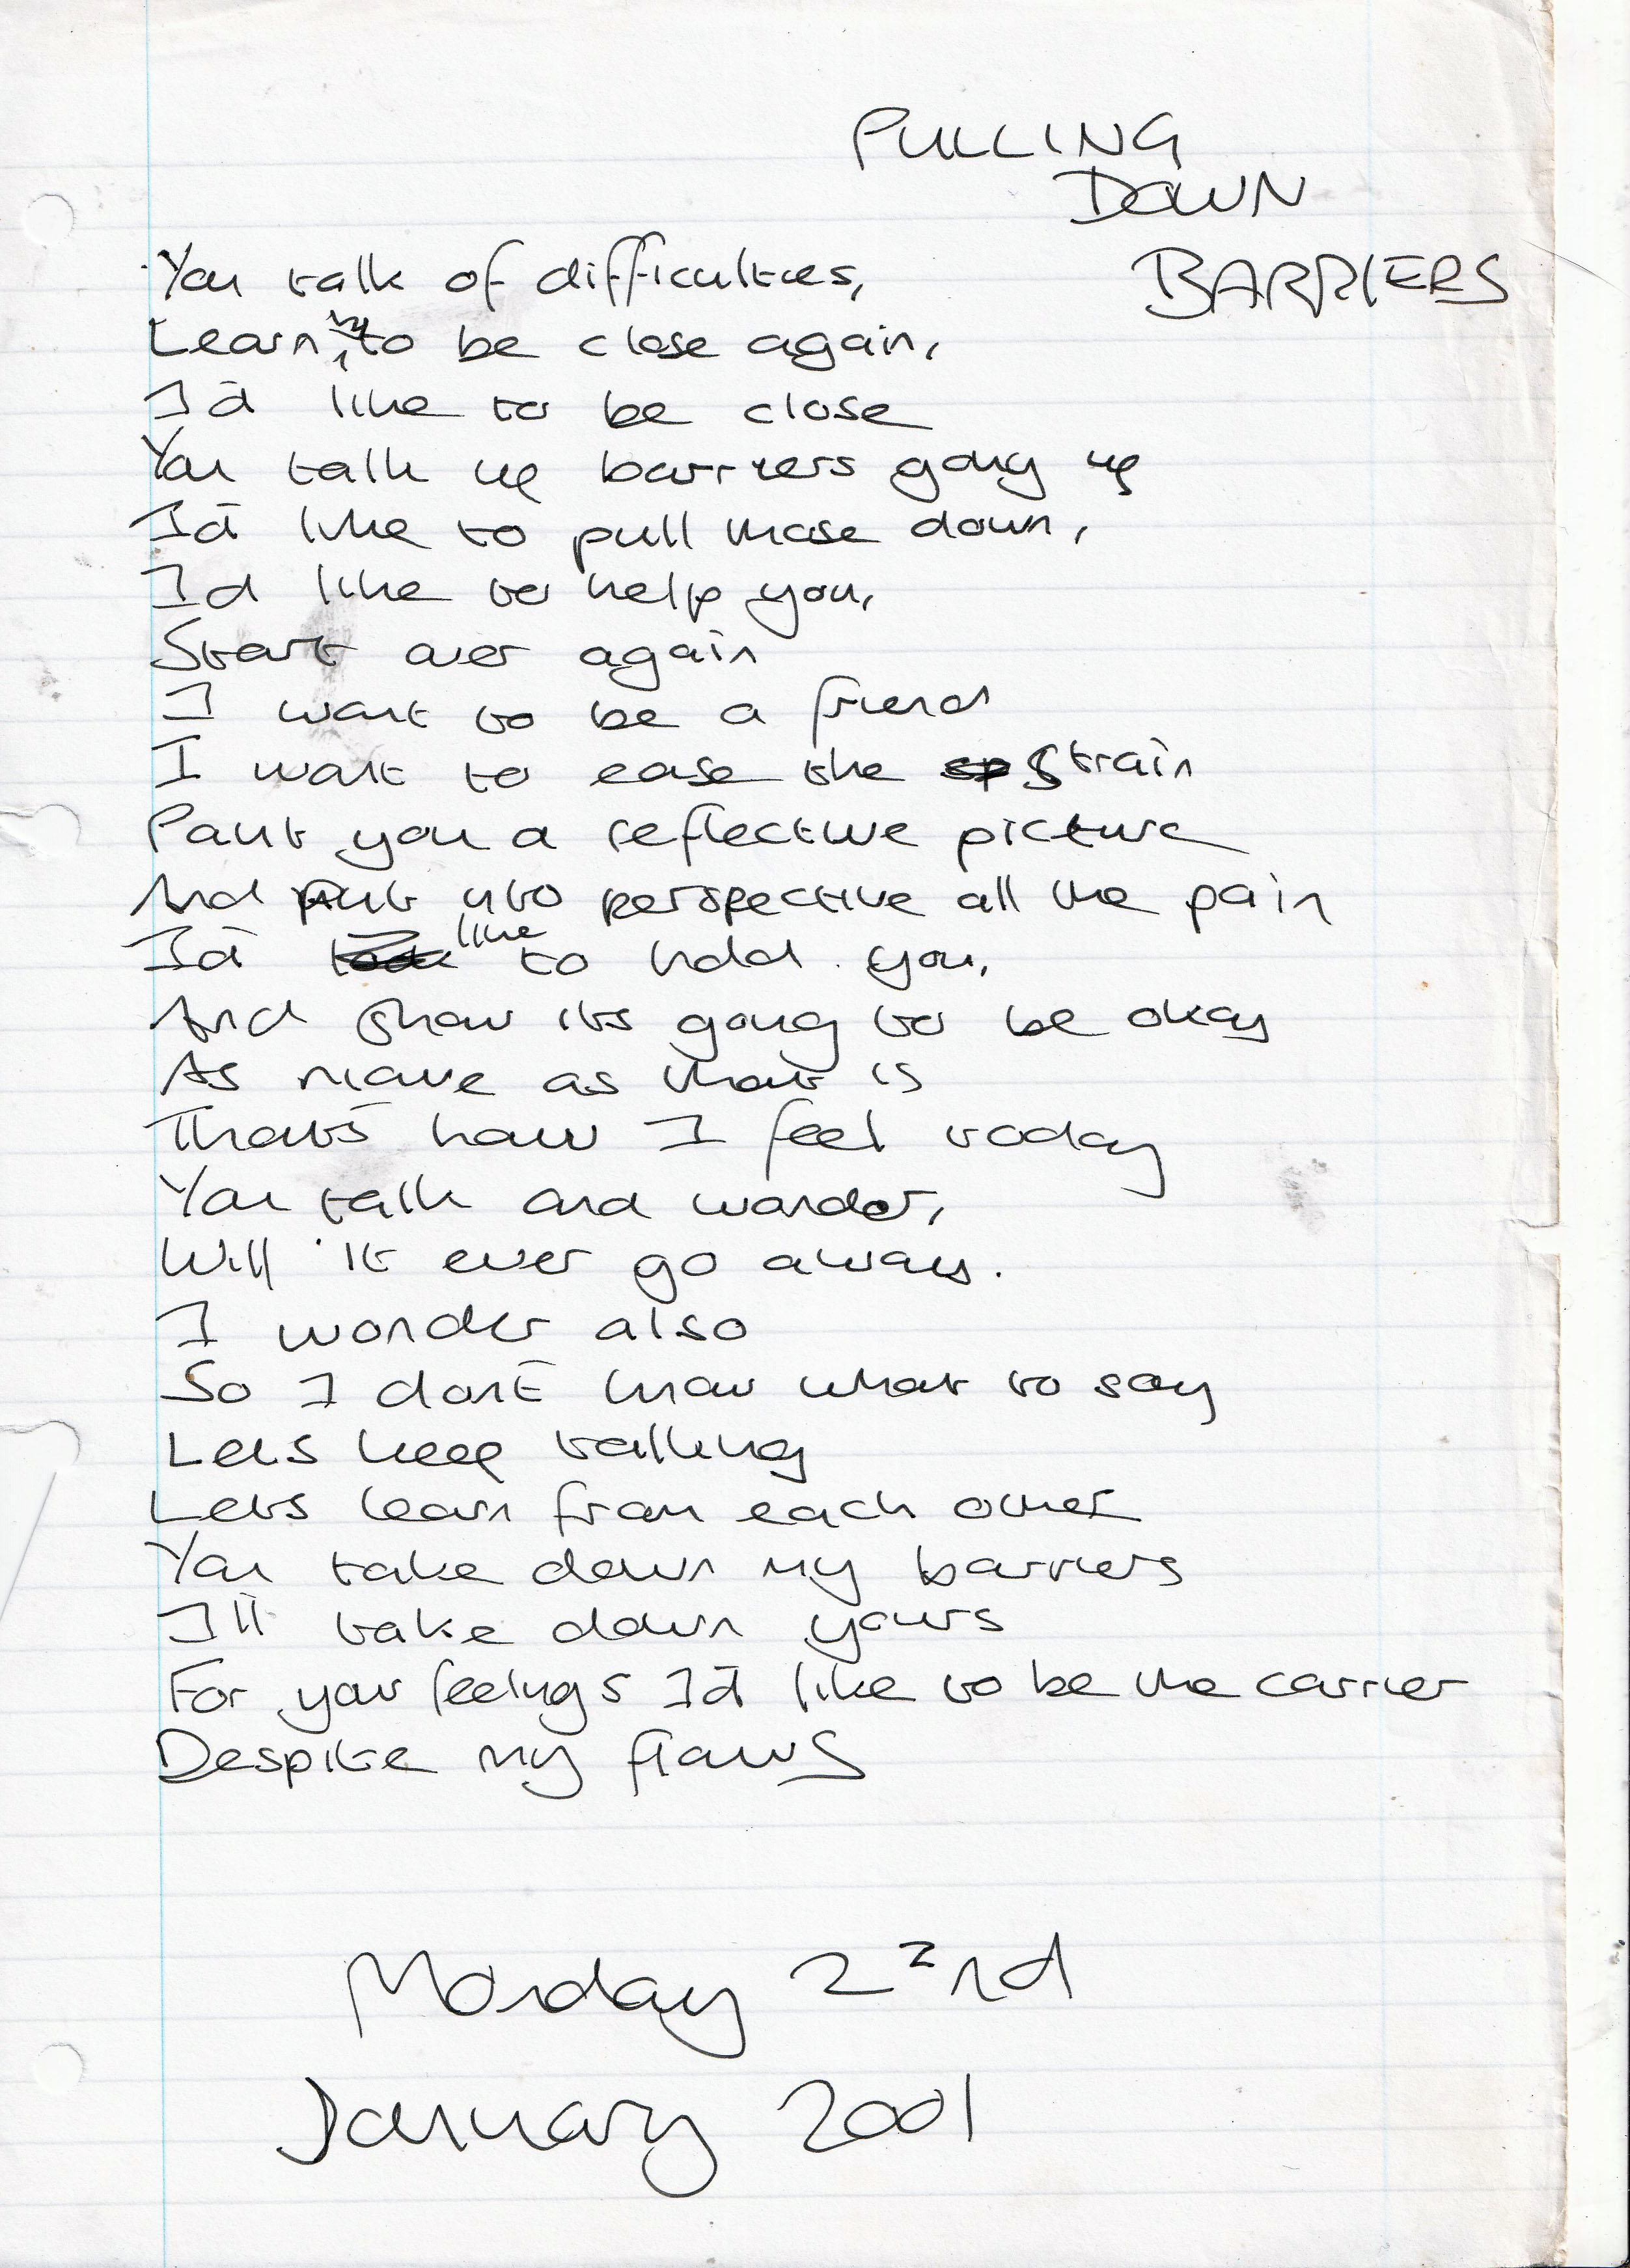 PULLING
DOWN
BARRIERS
You talk of difficulties,
Learning to be close again,
I'd like to be close
You talk up barriers going up
I'd like to pull those down,
I'd like to help you,
Start over again
I want to be a friend
I want to ease the strain
Paint you a reflective picture
And put into perspective all the pain
I'd like to hold you,
And show its going to be okay
As niave as that is
That's how I feel today
You talk and wonder,
Will it ever go away.
I wonder also
So I don't know what to say
Lets keep talking
Lets learn from each other
You take down my barriers
I'll take down yours
For your feelings I'd like to be the carrier
Despite my flaws
Monday 22nd
January 2001